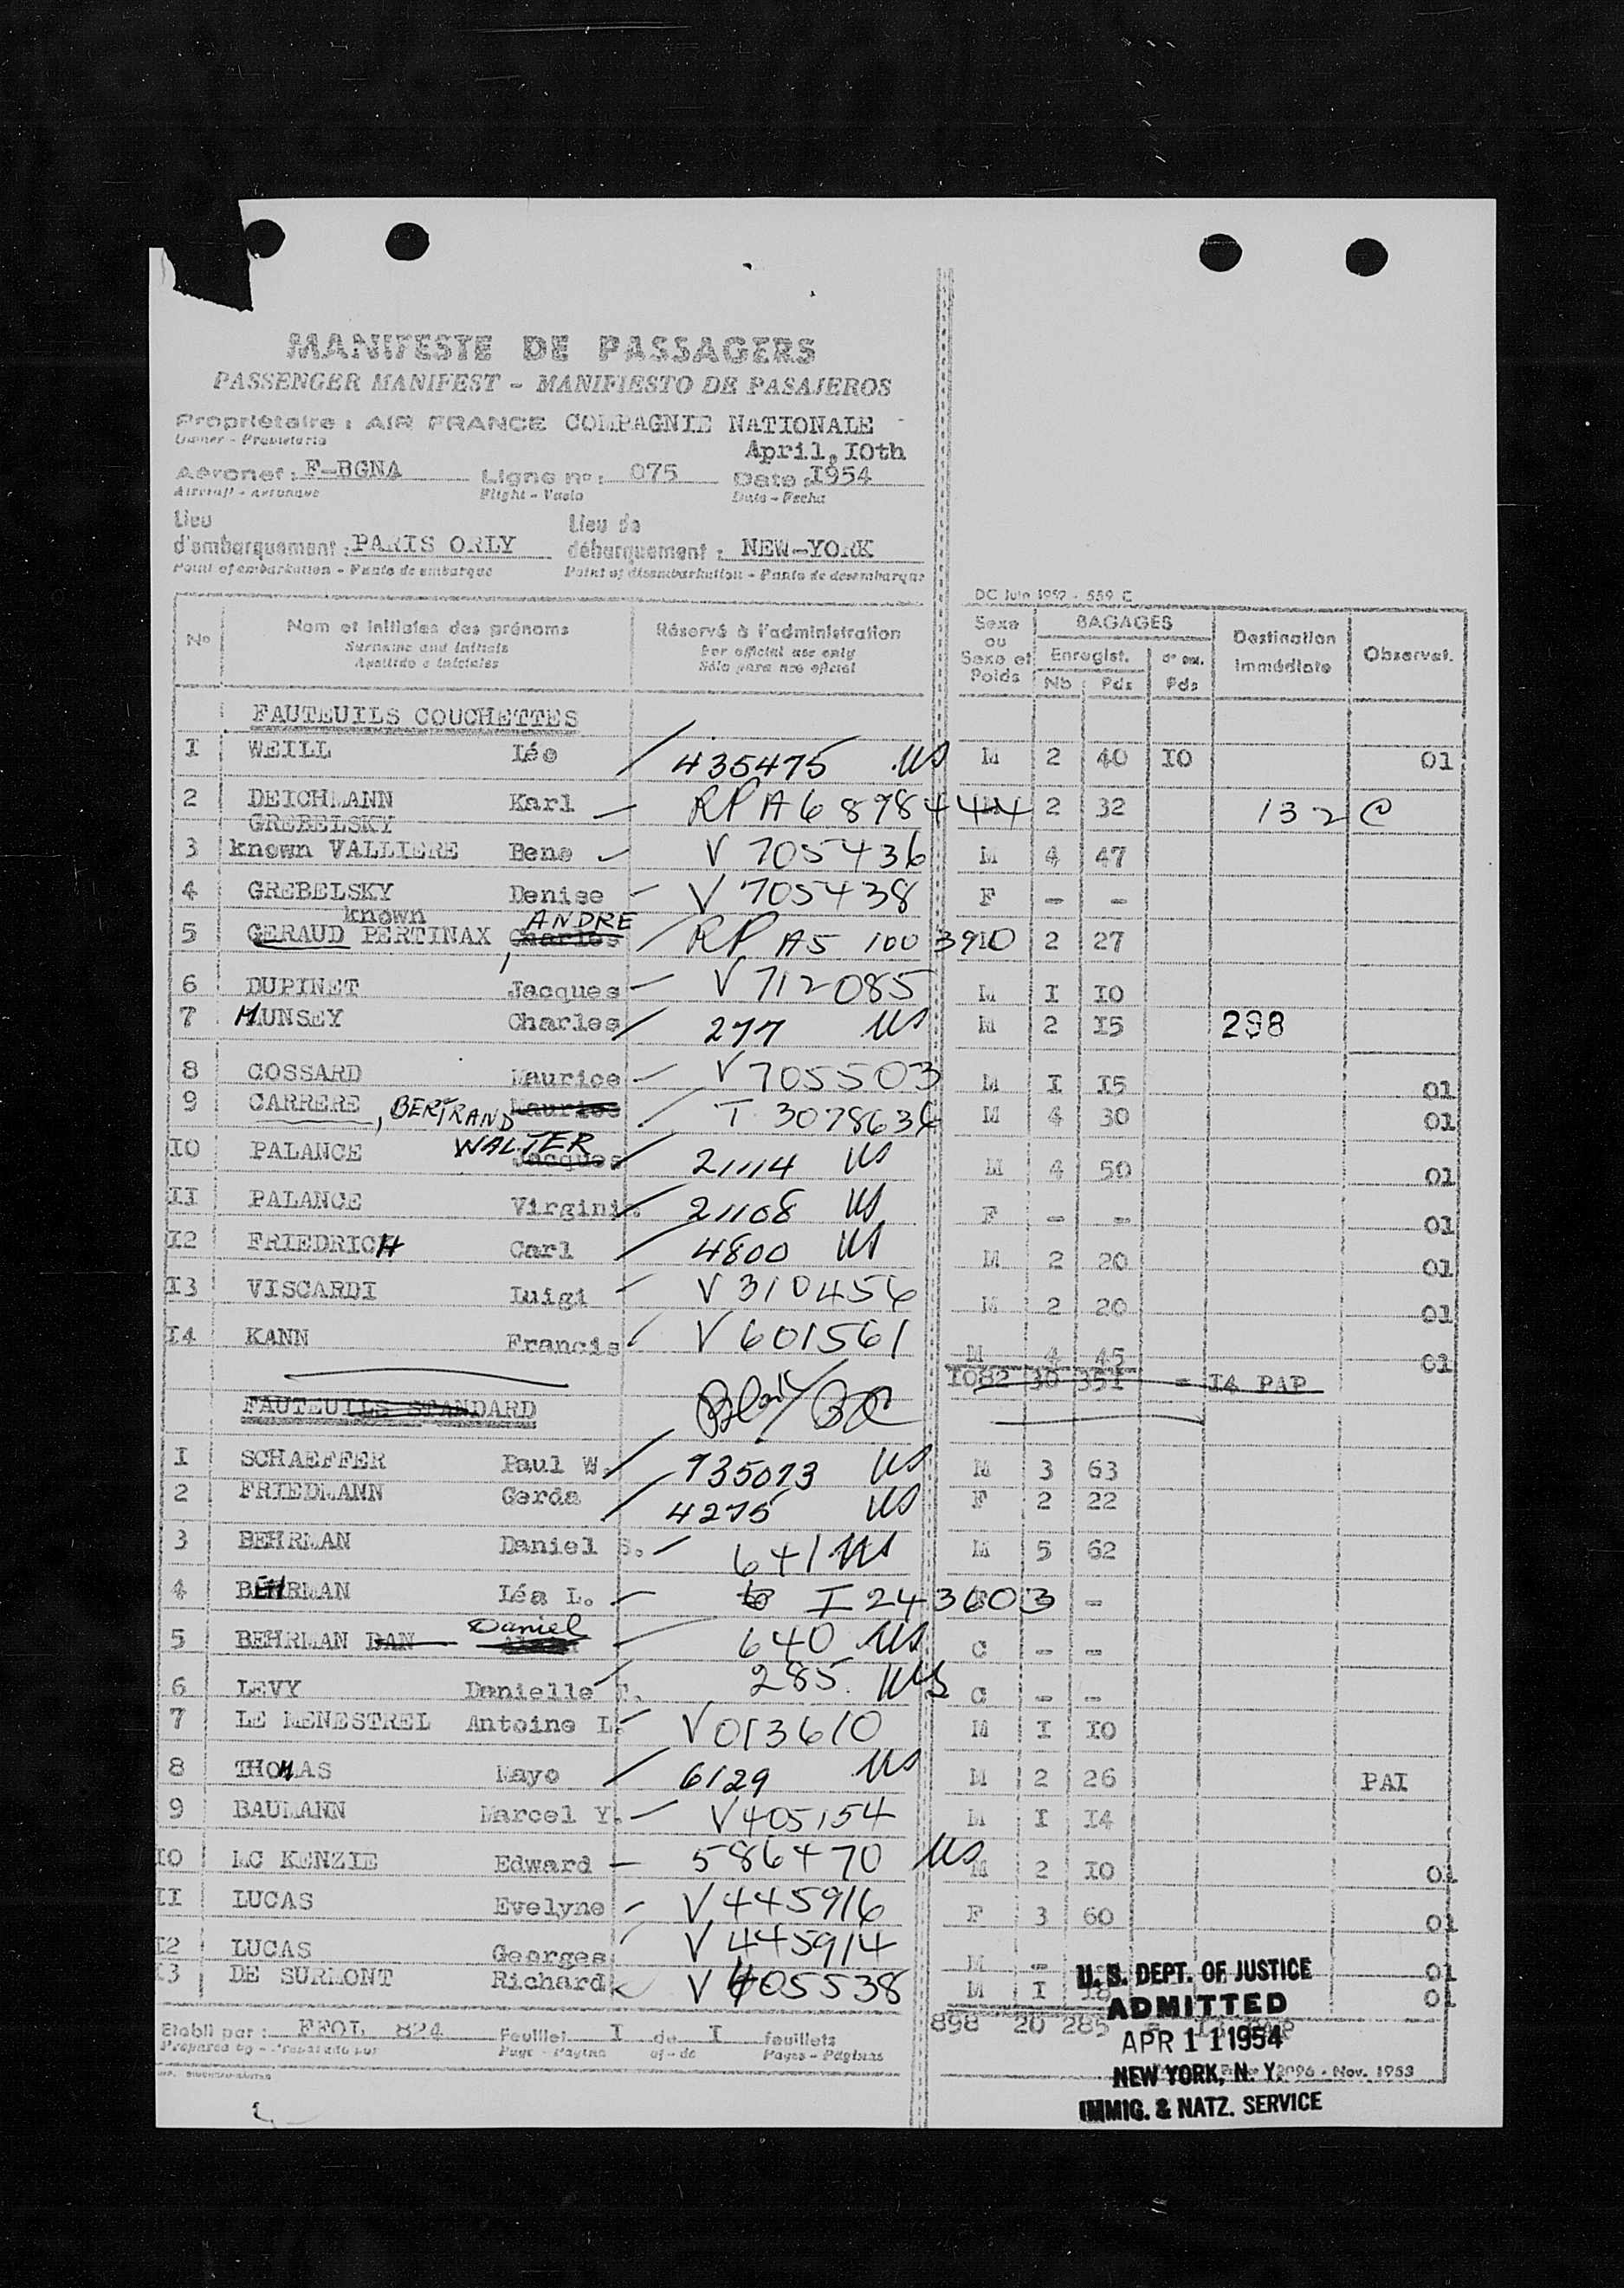 MANIFESTE DE PASSAGERS
PASSENGER MANIFEST - MANIFIESTO DE PASAJEROS
Propriétaire : AIR FRANCE COMPAGNIE NATIONALE
Owner - Propietario
April, IOth
Aéronef : F-BGNA Ligne n° : 075 Date : I954
Aircraft - Aeronave Flight - Vuelo Date - Fecha
Lieu d'embarquement : PARIS ORLY Lieu de débarquement : NEW-YORK
Point of embarkation - Punto de embarque Point of disembarkation - Punto de desembarque
DC Juin 1952 - 559 C
N° Nom et initiales des prénoms Réservé à l'administration Sexe ou Sexe et Poids BAGAGES Destination immédiate Observat.
Surname and Initials For official use only Enregist.
Apellido e iniciales Sólo para uso oficial Nb Pds Pds
FAUTEUILS COUCHETTES
I WEILL Léo 435475 US M 2 40 IO 01
2 DEICHMANN Karl RP A6 898444 2 32 132 @
GREBELSKY
3 known VALLIERE Bene V 705436 M 4 47
4 GREBELSKY Denise V 705438 F - -
known ANDRE
5 GERAUD PERTINAX Charles RP A5 100 3910 2 27
6 DUPINET Jacques V 712085 M I IO
7 MUNSEY Charles 277 US M 2 I5 298
8 GOSSARD Maurice V 705503 M I I5 01
9 CARRERE, BERTRAND Maurice T 3078636 M 4 30 01
WALTER
IO PALANCE Jacques 21114 US M 4 50 01
II PALANCE Virgini. 21108 US F - - 01
I2 FRIEDRICH Carl 4800 US M 2 20 01
I3 VISCARDI Luigi V 310456 M 2 20 01
I4 KANN Francis V 601561 M 4 45 01
I082 30 351 = I4 PAP
FAUTEUILS STANDARD
I SCHAEFFER Paul W. 735073 US M 3 63
2 FRIEDMANN Gerda 4275 US F 2 22
3 BEHRMAN Daniel S. 641 US M 5 62
4 BEHRMAN Léa L. I 243603 -
Daniel
5 BEHRMAN DAN 640 US C - -
6 LEVY Danielle T. 285 US C - -
7 LE MENESTREL Antoine L. V 013610 M I IO
8 THOMAS Mayo 6129 US M 2 26 PAI
9 BAUMANN Marcel Y. V 405154 M I I4
IO MC KENZIE Edward 586470 US M 2 IO 01
II LUCAS Evelyne V 445916 F 3 60 01
I2 LUCAS Georges V 445914 M - 01
I3 DE SURMONT Richard V 405538 M I I8 01
898 20 285 =
Etabli par : FFOL 824 Feuillet I de I feuillets
Prepared by Page - Página of - de Pages - Páginas
2096 - Nov. 1953
U. S. DEPT. OF JUSTICE
ADMITTED
APR 11 1954
NEW YORK, N. Y.
IMMIG. & NATZ. SERVICE